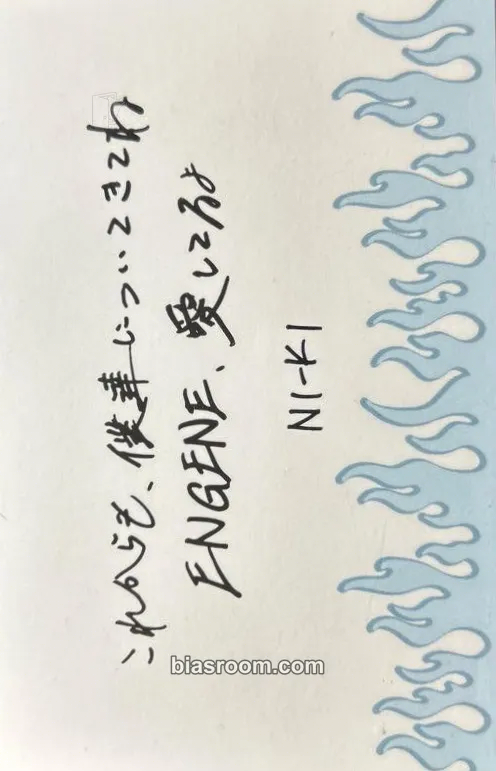 これからも、僕達についてきてね
ENGENE、愛してるよ
NI-KI
biasroom.com